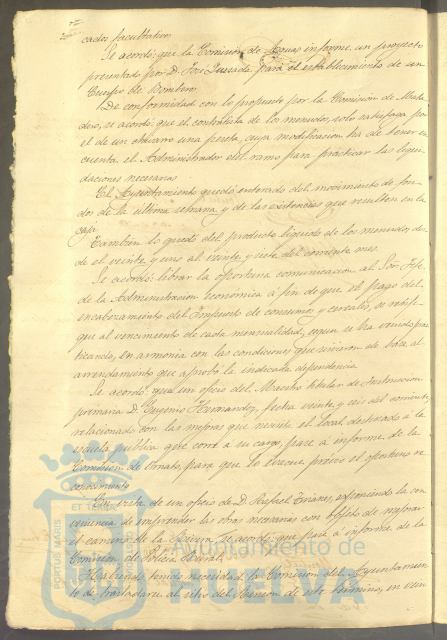 cados facultativos.
Se acordó: que la Comisión de Aguas informe un proyecto
presentado por D. José Quesada, para el establecimiento de un
Cuerpo de Bomberos.
De conformidad con lo propuesto por la Comisión de Mata
dero, se acordó: que el contratista de los menudos, solo satisfaga por
el de un chivarro una peseta, cuya modificacion ha de tener en
cuenta el Administrador del ramo para practicar las liqui
daciones necesarias.
El Ayuntamiento quedó enterado del movimiento de fon
dos de la última semana y de las existencias que resultan en la
Caja.
También lo quedó del producto líquido de los menudos, des
de el veinte y uno al veinte y siete del corriente mes.
Se acordó: librar la oportuna comunicacion al Sor. Jefe
de la Administracion económica á fin de que el pago del
encabezamiento del Impuesto de consumos y cereales, se verifi
que al vencimiento de cada mensualidad, segun se ha venido prac
ticando, en armonia con las condiciones que sirvieron de base al
arrendamiento que aprobó la indicada dependencia.
Se acordó: que un oficio del Maestro titular de Instruccion
primaria D. Eugenio Hernandez, fecha veinte y seis del corriente,
relacionado con las mejoras que necesita el local destinado á la
escuela pública que corre á su cargo, pase á informe de la
Comision de Ornato, para que lo evacue, prévio el oportuno re
conocimiento.
En vista de un oficio de D. Rafael exponiendo la con
veniencia de emprender las obras necesarias con objeto de mejorar
el camino de la se acordó: que pase á informe de la
Comision de Policía Rural.
Habiendo tenido necesidad la Comision del Ayuntamien
to de trasladarse al sitio del de este término, en cum
PORTUS MARIS ET TERRAE
Ayuntamiento de
HUELVA